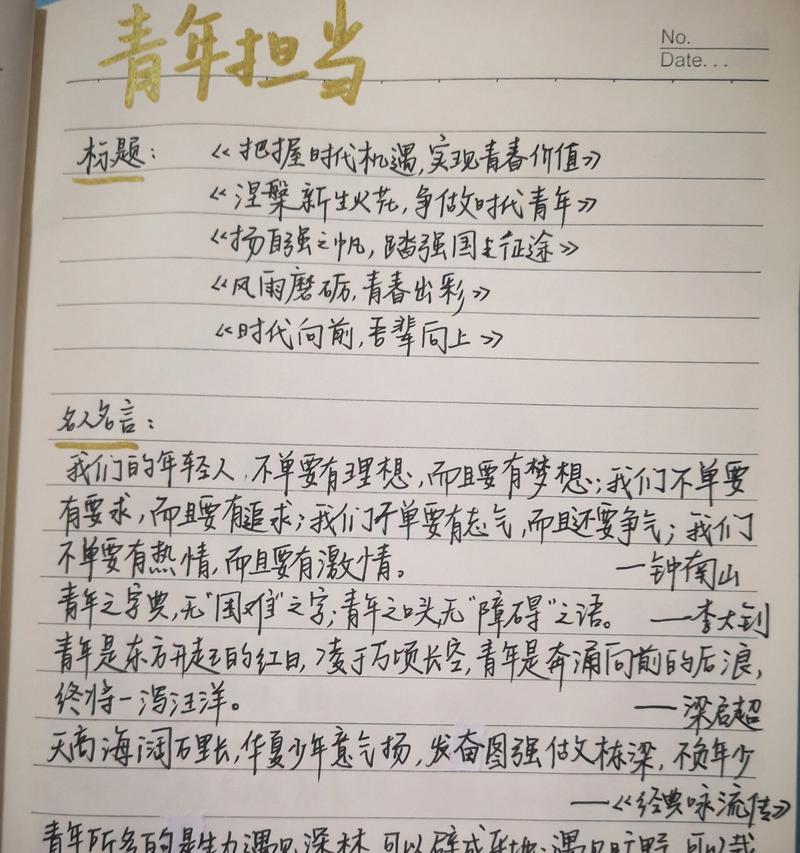 青年担当
No.
Date...
标题：
《把握时代机遇,实现青春价值》
《涅槃新生火花,争做时代青年》
《扬自强之帆,踏强国之征途》
《风雨磨砺,青春出彩》
《时代向前,吾辈向上》
名人名言：
我们的年轻人,不单要有理想,而且要有梦想;我们不单要
有要求,而且要有追求;我们不单要有志气,而且还要争气;我们
不单要有热情,而且要有激情。 —钟南山
青年之字典,无"困难"之字;青年之口头,无"障碍"之语。 —李大钊
青年是东方升起的红日,凌于万顷长空,青年是奔涌向前的后浪,
终将一泻汪洋。 —梁启超
天高海阔万里长,华夏少年意气扬,发奋图强做栋梁,不负年少
—《经典咏流传》
青年所多的是生力,遇见深林,可以辟成平地;遇见旷野,可以栽